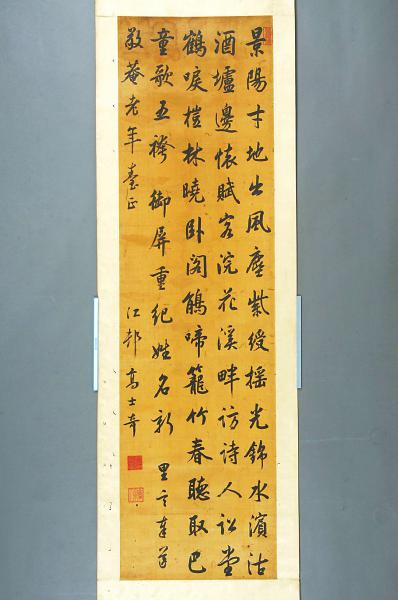 景陽才地出風塵紫綬搖光錦水濱沽
酒壚邊懷賦客浣花溪畔訪詩人訟堂
鶴唳榿林曉臥閣鵑啼籠竹春聽取巴
童歌五袴御屏重紀姓名新 里言奉送
敬菴老年臺正 江邨高士奇